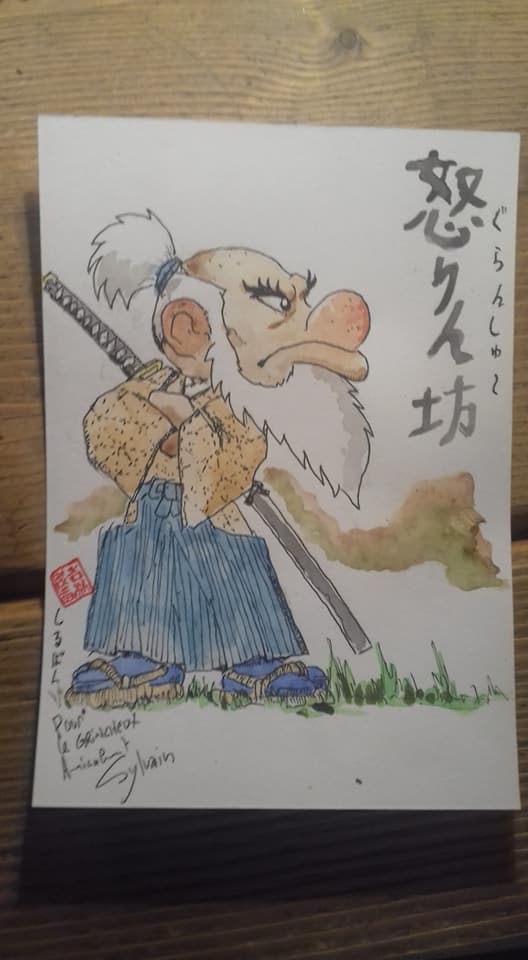 怒りん坊
ぐらんしゅ～
しるばん
Pour
le GRINCHEUX
Amicalement
Sylvain